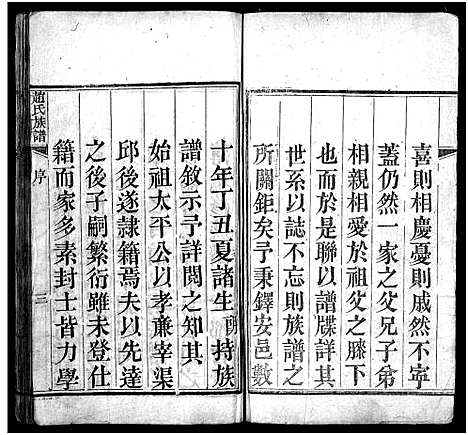 喜則相慶憂則戚然不寧
蓋仍然一家之父兄子弟
相親相愛於祖父之膝下
也而於是聯以譜牒詳其
世系以誌不忘則族譜之
所關鉅矣予秉鐸安邑數
十年丁丑夏諸生 持族
譜敘示予詳閱之知其
始祖太平公以孝亷宰渠
邱後遂隷籍焉夫以先達
之後子嗣繁衍雖未登仕
籍而家多素封士皆力學
趙氏族譜
序
三